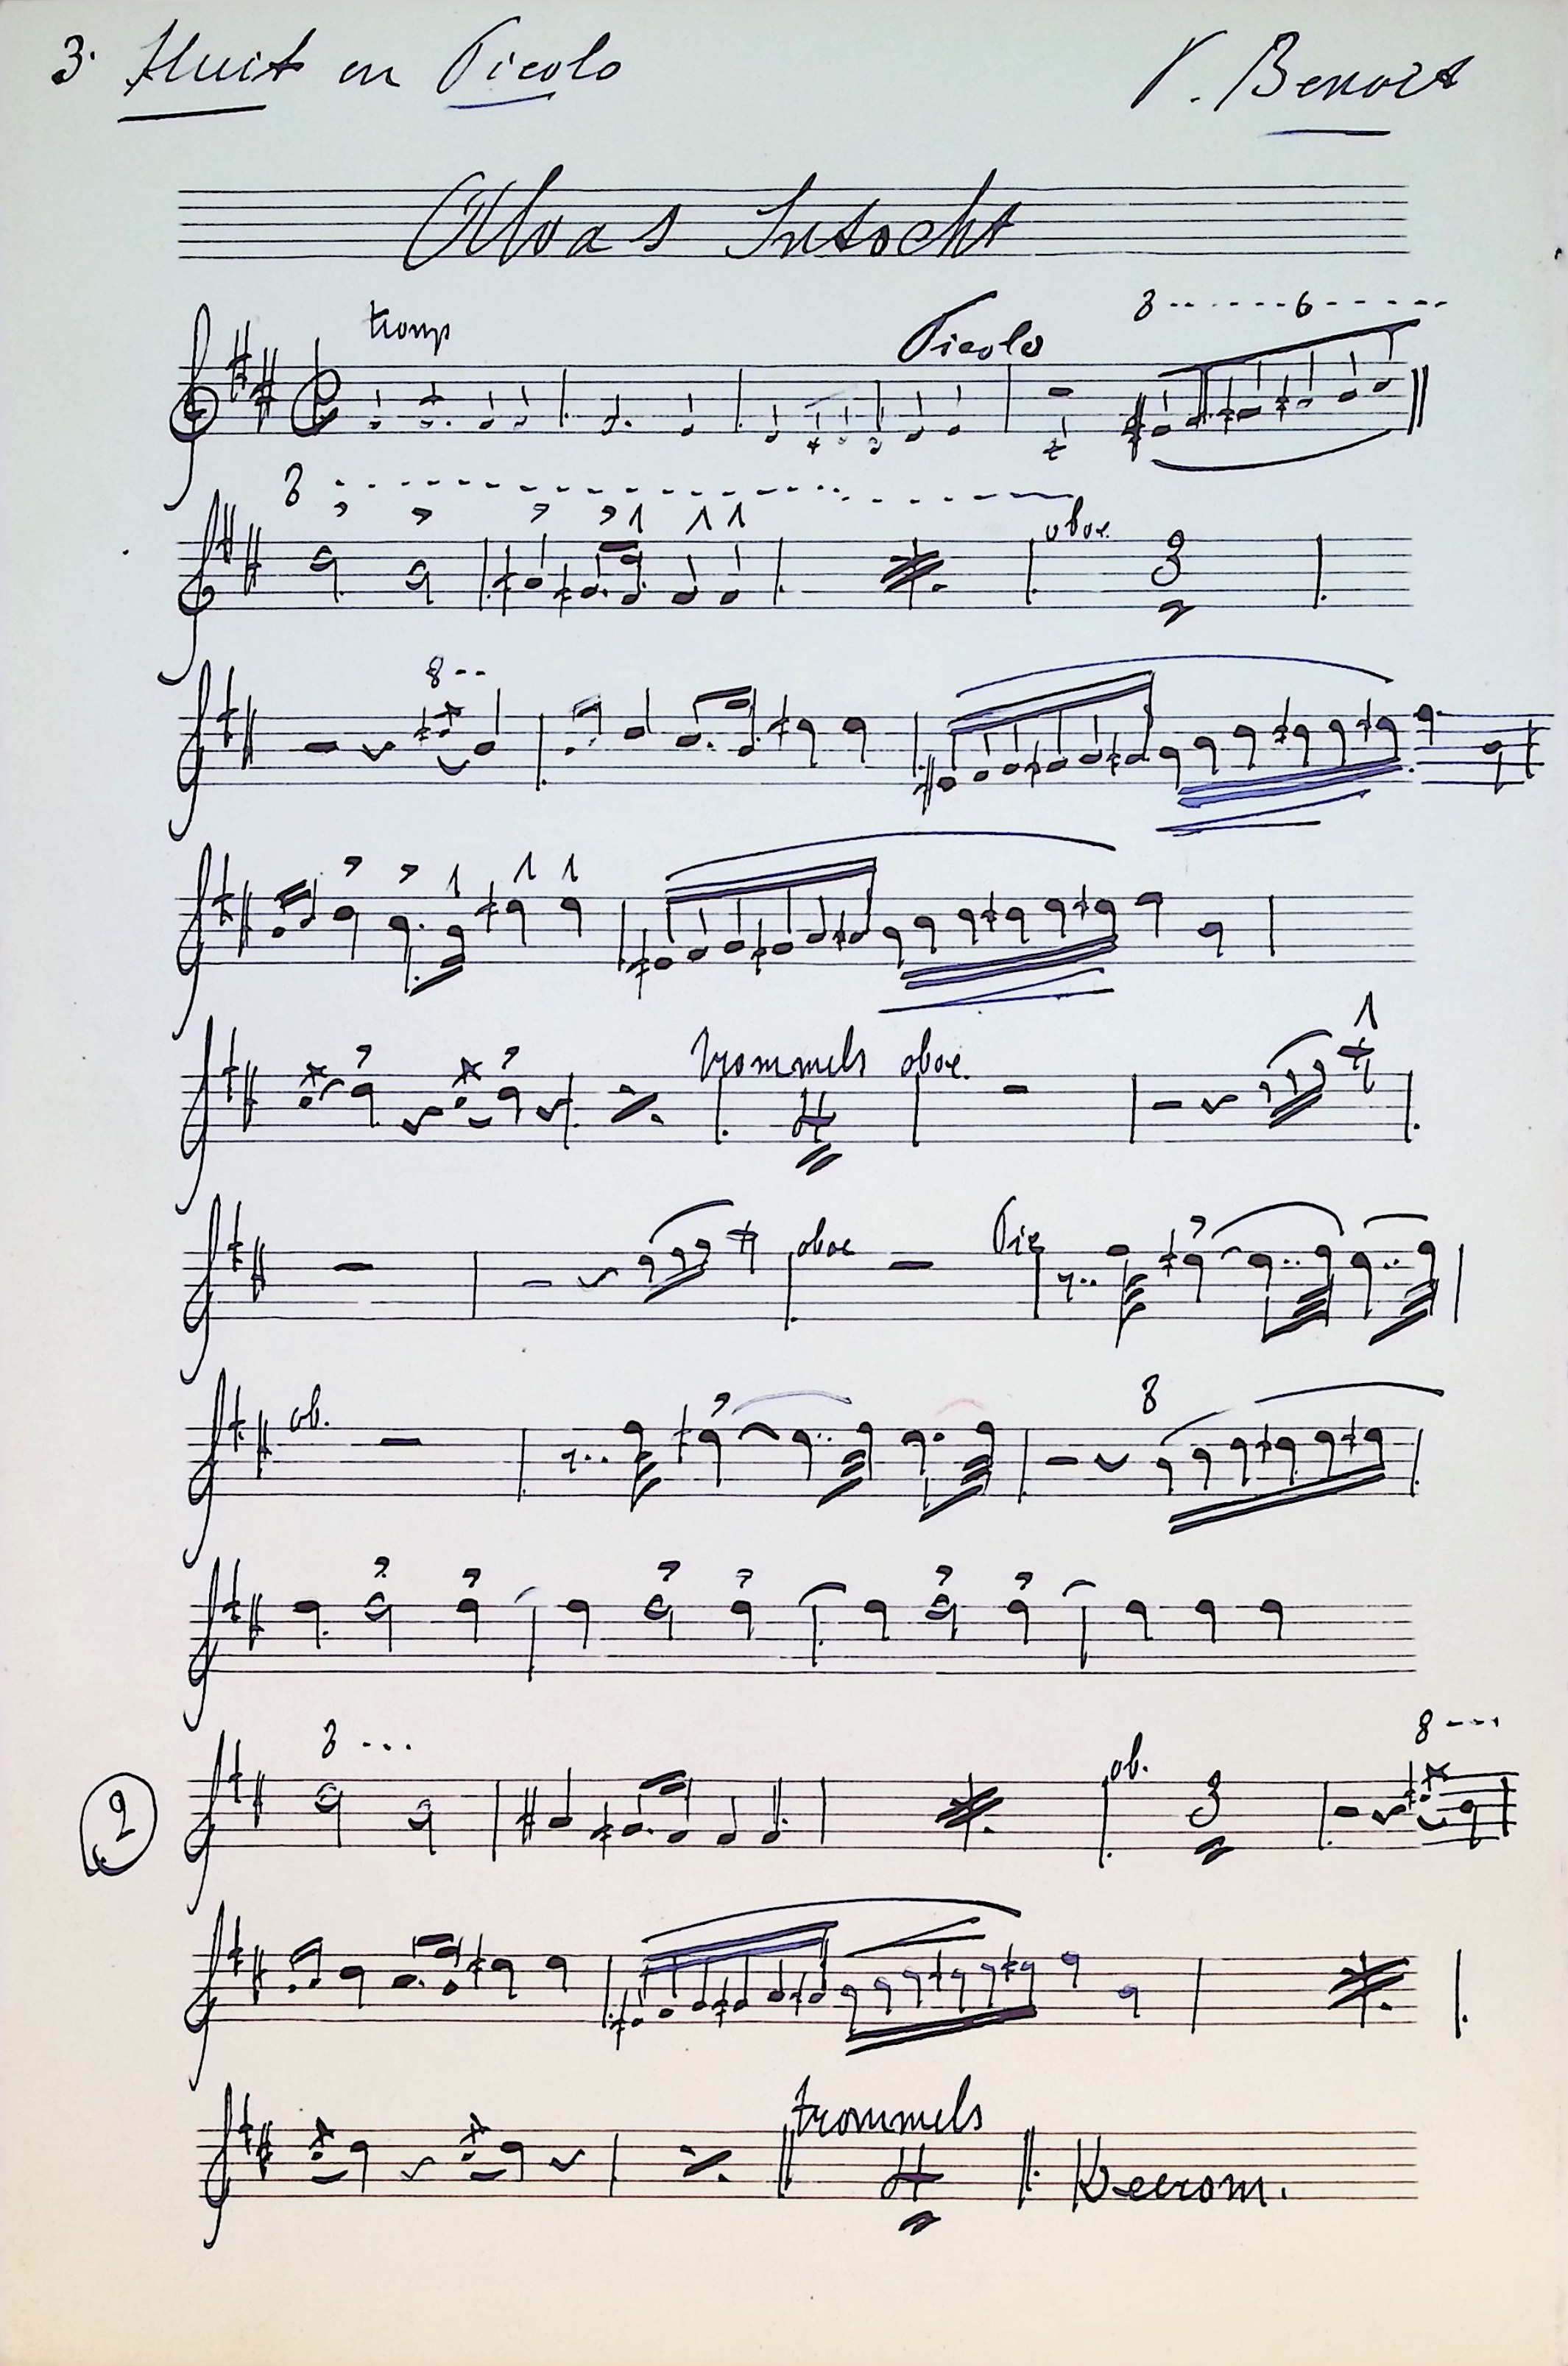 3. Fluit en Picolo P. Benoit
Alvas Intocht
tromp Picolo 8 6
8 oboe. 3
8
trommels oboe. 4
oboe Pic
ob. 8
2 8 ob. 3 8
trommels 4 Weerom.